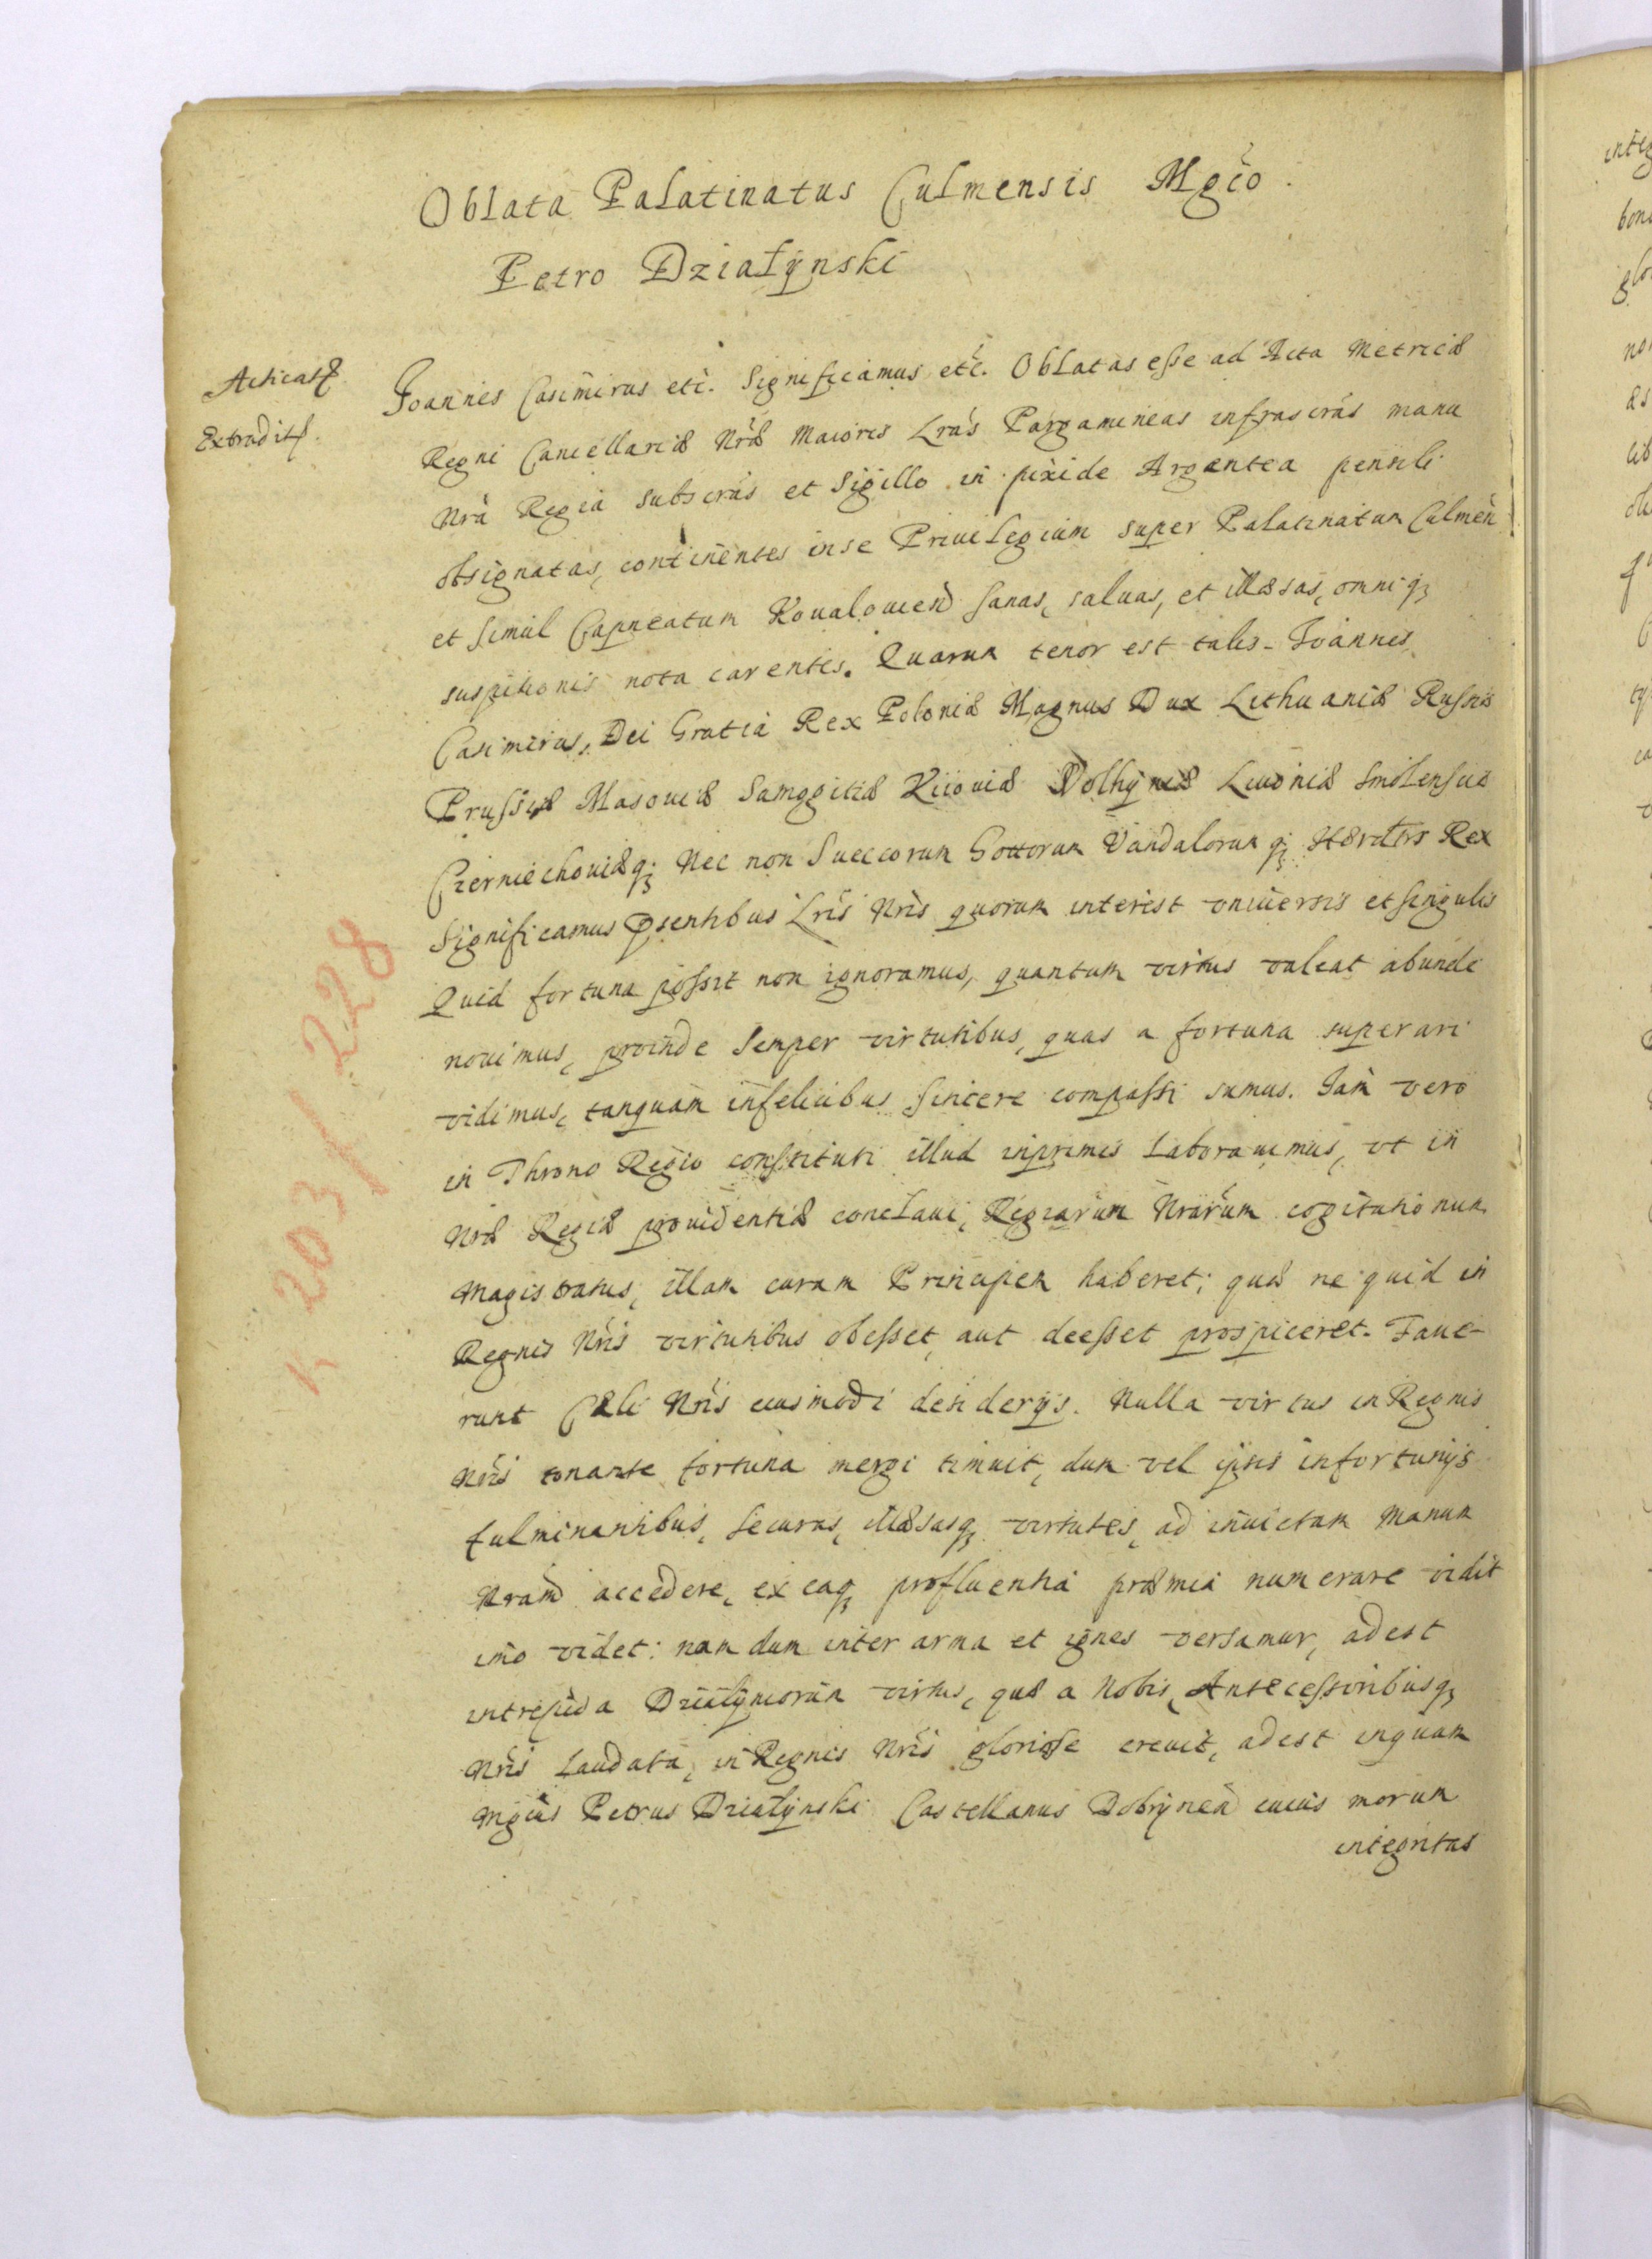 Oblata Palatinatus Culmensis Mgco.
Petro Działynski
Acticatę
Extraditę.
Joannes Casimirus etc. Significamus etc. Oblatas esse ad Acta Metricæ
Regni Cancellariæ Nræ Maioris Lras Pargamineas infrascras manu
Nra Regia subscras et Sigillo in pixide Argentea pensili
obsignatas, continentes in se Priuilegium super Palatinatum Culmen
et simul Capneatum Koualouien sanas, saluas, et illæsas, omniq
suspitionis nota carentes. Quarum tenor est talis. Joannes
Casimirus, Dei Gratia Rex Poloniæ Magnus Dux Lithuaniæ Russiæ
Prussiæ Masouiæ Samogitiæ Kiiouiæ Volhyniæ Liuoniæ Smolensciæ
Czerniechouiæq; Nec non Sueccorum Gottorum Vandalorumq; Hærdtrs Rex
Significamus pńtibus Lris Nris quorum interest vniuersis et singulis
Quid fortuna possit non ignoramus, quantum virtus valeat abunde
nouimus, proinde semper virtutibus, quas a fortuna superari
vidimus, tanquam infelicibus sincere compassi sumus. Jam vero
in Throno Regio constituti illud inprimis laborauimus, vt in
Nræ Regiæ prouidentiæ conclaui, Regiarum Nrarum cogitationum
Magistratus, illam curam Principem haberet; quæ ne quid in
Regnis Nris virtutibus obesset, aut deesset prospiceret. Faue-
runt Cæli Nris eiusmodi desiderijs. Nulla virtus in Regnis
Nris tonante fortuna mergi timuit, dum vel ipsis infortunijs
fulminantibus, securas, illæsasq virtutes, ad inuictam Manum
Nram accedere, ex eaq profluentia præmia numerare vidit
imo videt: nam dum inter arma et ignes versamur, adest
intrepida Działyniorum virtus, quæ a Nobis, Antecessoribusq
Nris laudata, in Regnis Nris gloriose creuit, adest inquam
Mgcus Petrus Działynski Castellanus Dobrynen cuius morum
integritas
K 203/228